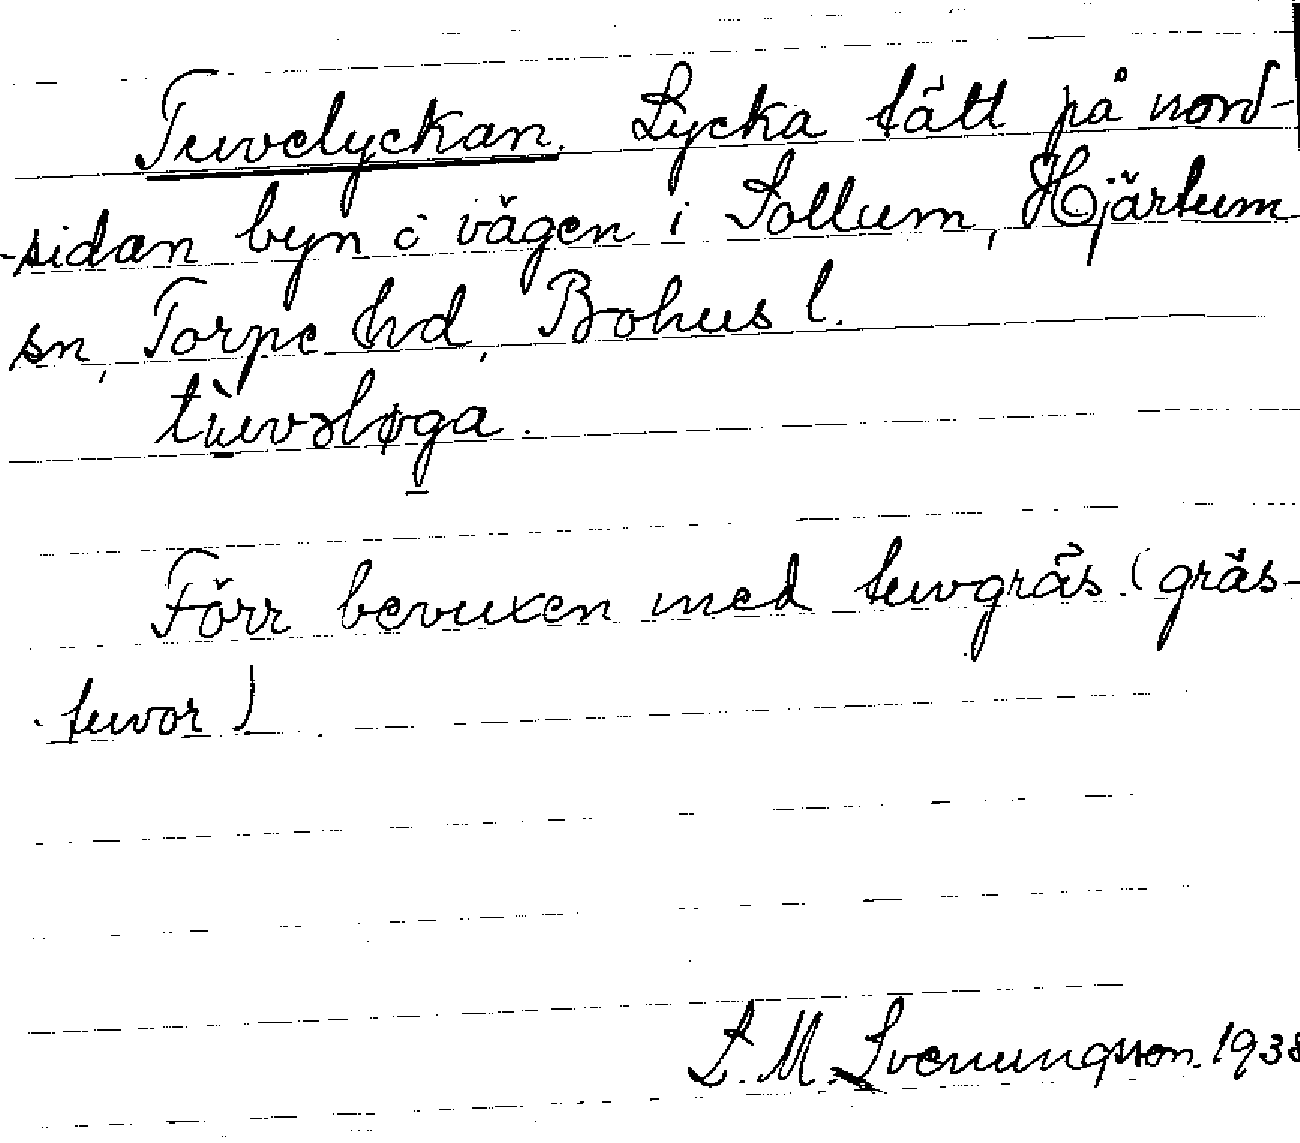 Tuvelyckan. Lycka tätt på nord-
sidan byn o vägen i Sollum, Hjärtum
sn, Torpe hd, Bohus l.
tùvəløga.
Förr bevuxen med tuvgräs (gräs-
tuvor)
L. M. Svenungsson. 1938